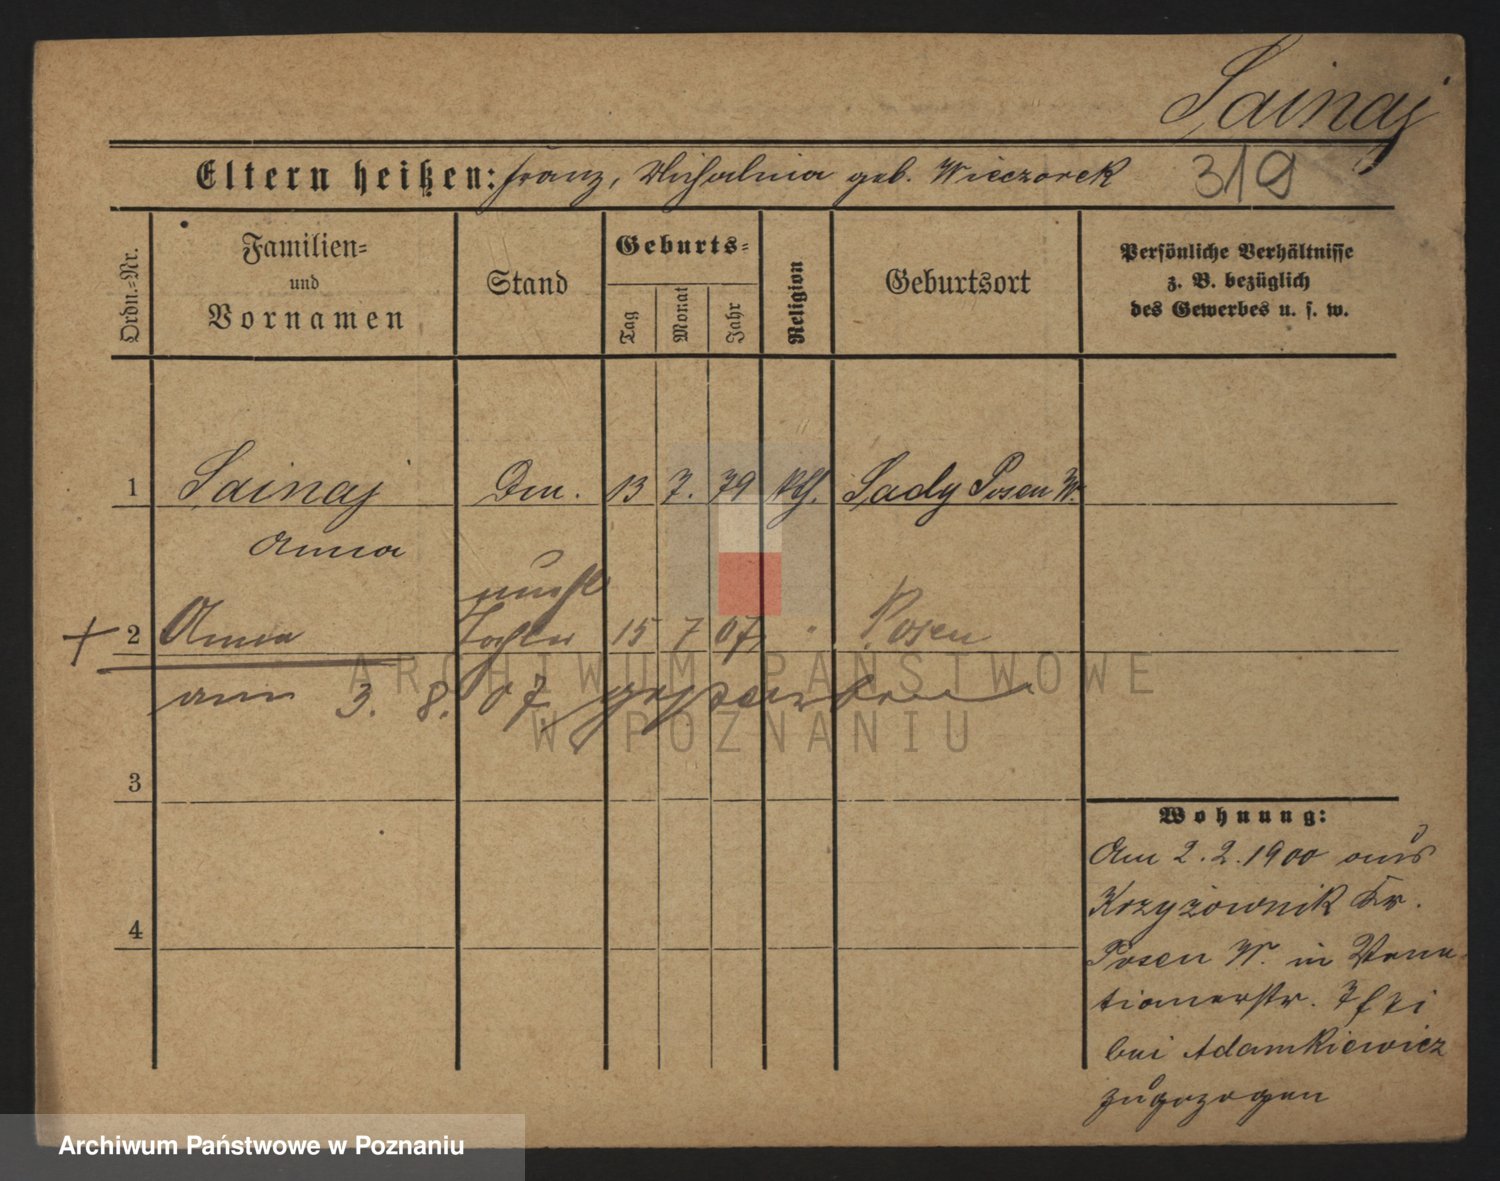 Sainaj
Eltern heißen: Franz, Michalina geb. Wieczorek 319
Ordn.-Nr.
Familien-
und
Vornamen
Stand
Geburts-
Tag
Monat
Jahr
Religion
Geburtsort
Persönliche Verhältnisse
z. B. bezüglich
des Gewerbes u. s. w.
1 Sainaj Dm. 13 7. 79 kth. Sady Posen W.
Anna
unehl
+ 2 Anna Tochter 15 7 07 " Posen
am 3. 8. 07 gestorben
3
4
Wohnung:
Am 2.2.1900 aus
Krzyżownik Kr.
Posen W. in
bei Adamkiewicz
zugezogen
ARCHIWUM PAŃSTWOWE
W POZNANIU
Archiwum Państwowe w Poznaniu